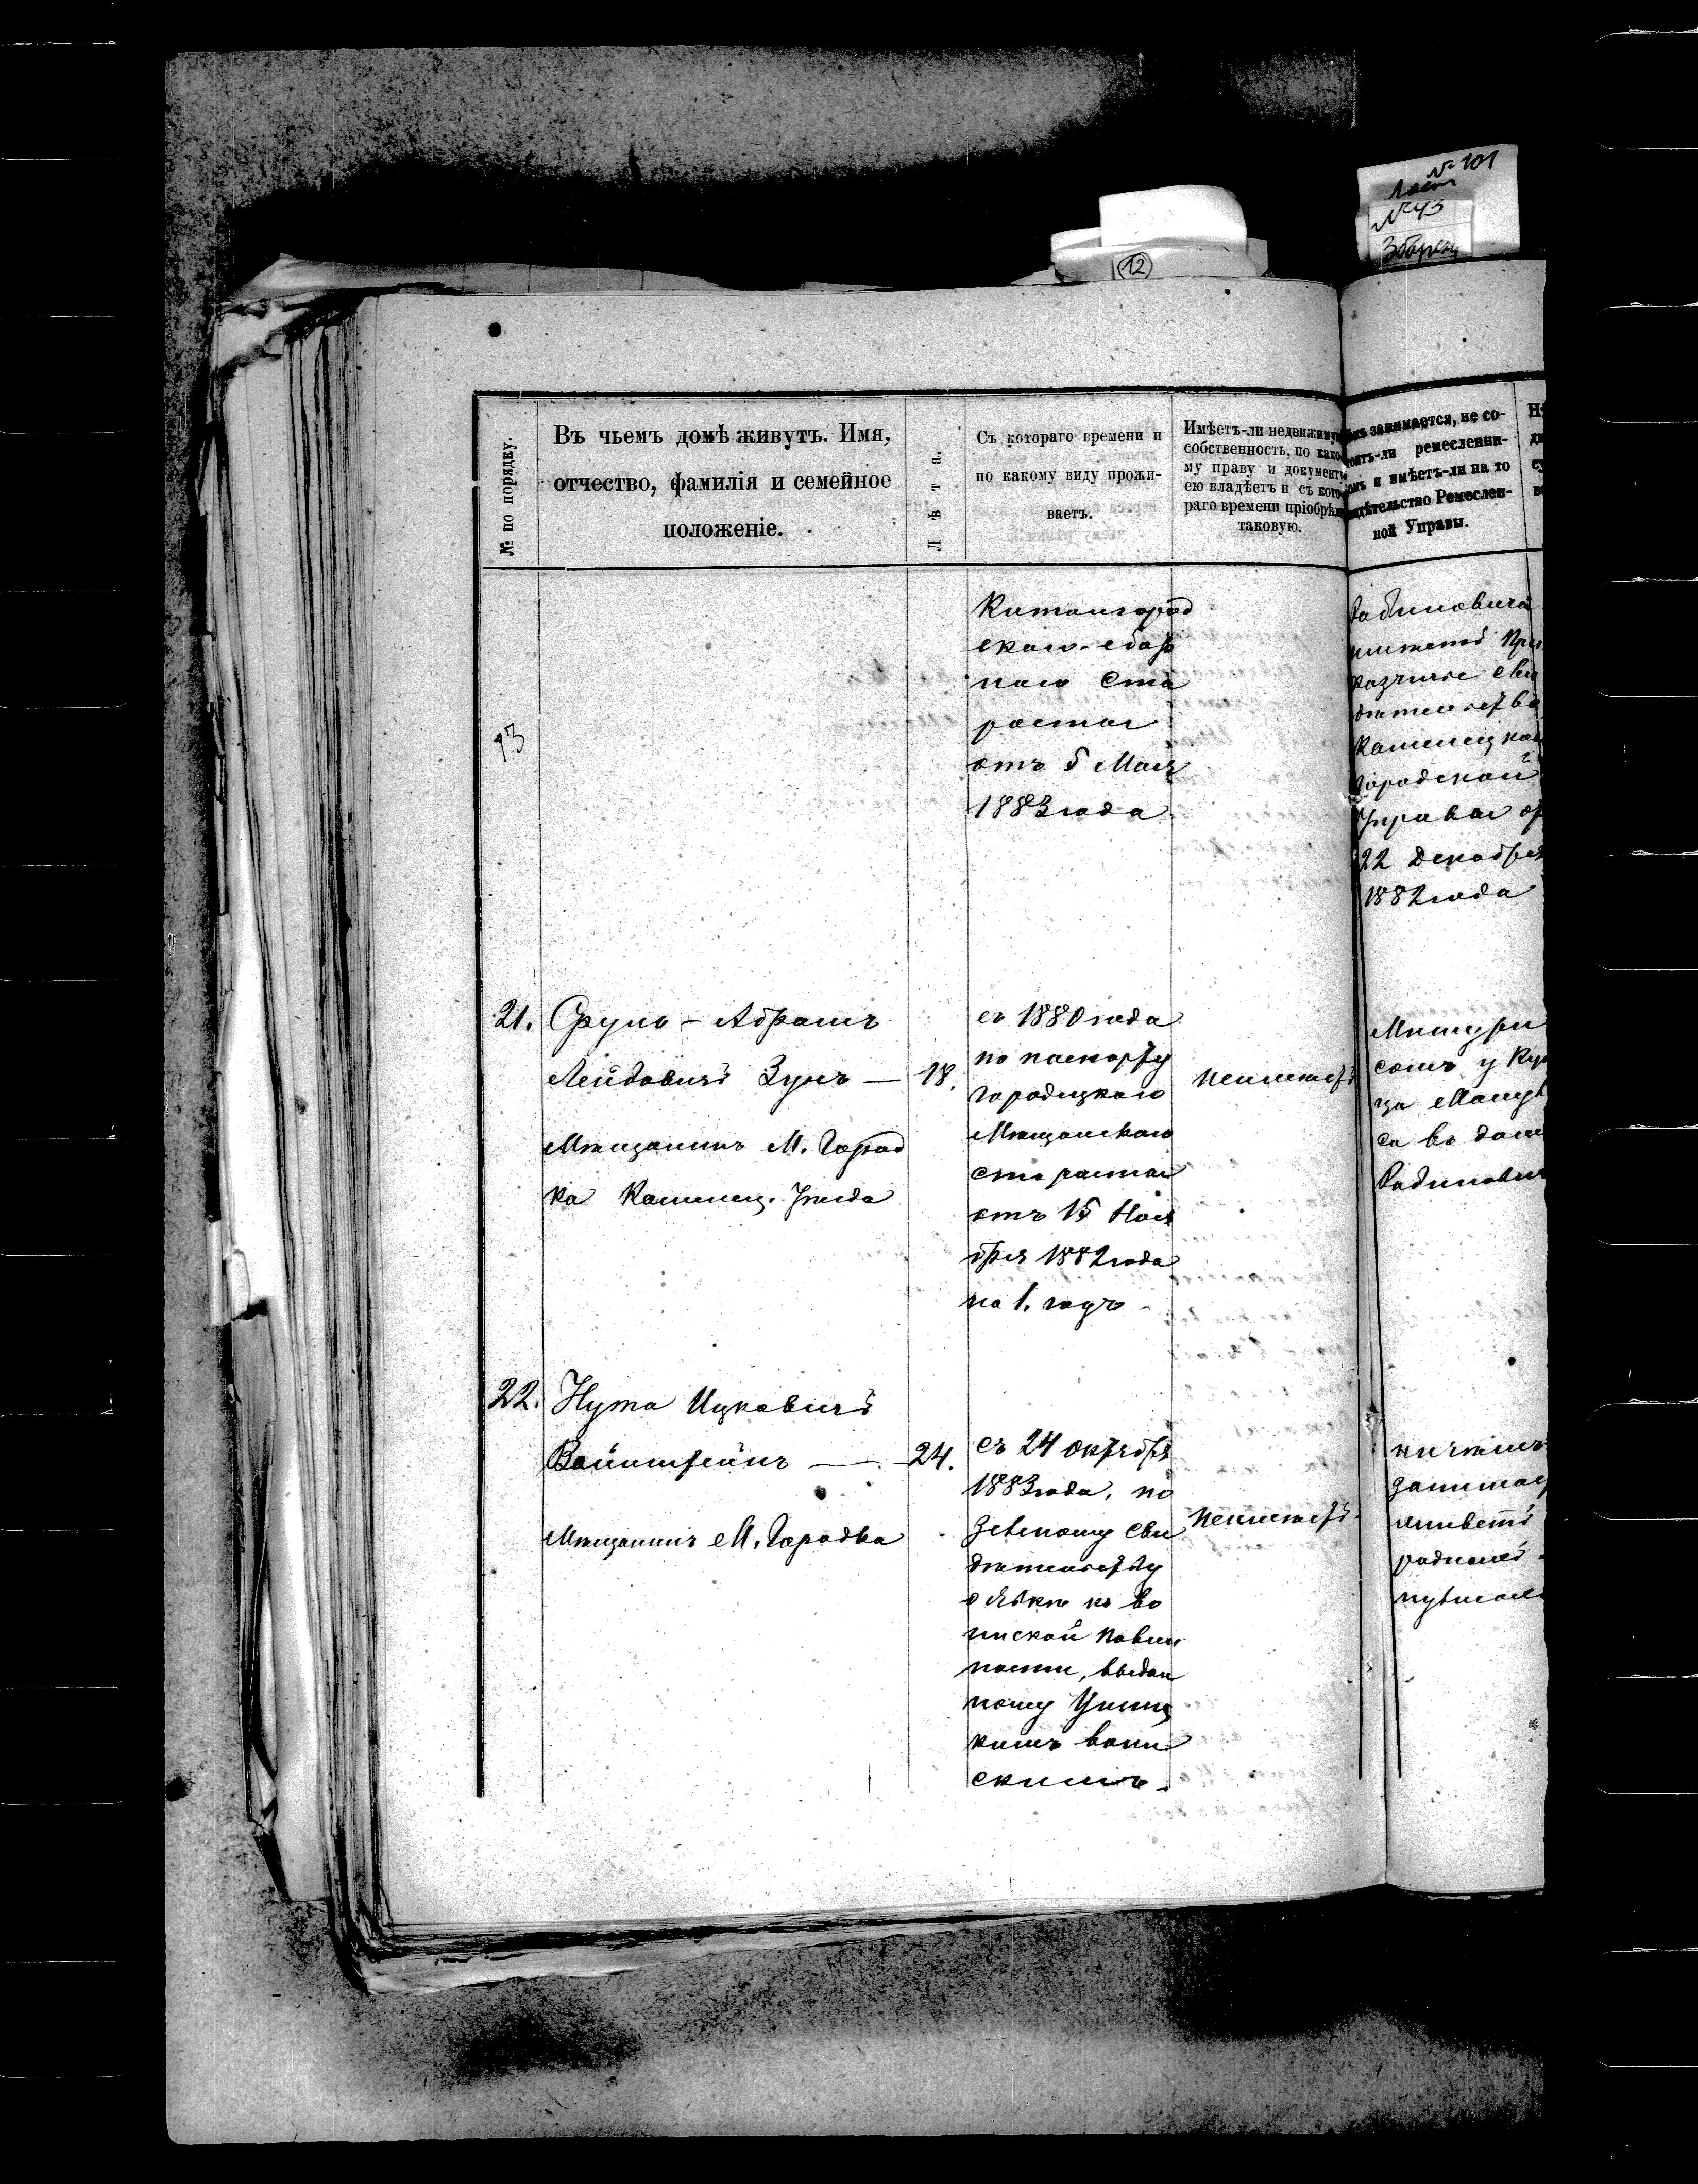 № 101
Лист
№ 43
Збараж
12
№ по порядку.
Въ чьемъ домѣ живутъ. Имя,
отчество, фамилія и семейное
положеніе.
Лѣта.
Съ котораго времени и
по какому виду прожи-
ваетъ.
Имѣетъ-ли недвижиму
собственность, по како-
му праву и документ
ею владѣетъ и съ кото-
раго времени пріобрѣ
таковую.
занимается, не со-
ли ремесленни-
и имѣетъ-ли на то
дѣтельство Ремеслен-
ной Управы.
Китайгород
скаго сбор
наго Ста
росты
отъ 5 Мая
1883 года
Рабиновича
имѣетъ При
казчичье сви
дѣтельство
Каменецкой
городской
Управы от
22 Декабря
1882 года
21.
Сруль-Абрамъ
Лейбовичъ Зунъ — 18.
Мѣщанинъ М. Город
ка Каменец. Уѣзда
съ 1880 года
по паспорту
городецкаго
Мѣщанскаго
старосты
отъ 15 Ноя
бря 1882 года
на 1. годъ
неимѣетъ
сомъ у Куп
ца
са въ доме
Рабинович
22.
Нута Ицковичъ
Вайнштейнъ — 24.
Мѣщанинъ М. Городка
съ 24 октября
1883 года, по
зеленому сви
дѣтельству
о явке къ во
инской повин
ности, выдан
ному
кимъ воин
скимъ.
неимѣетъ
ничѣмъ
занимает
живетъ